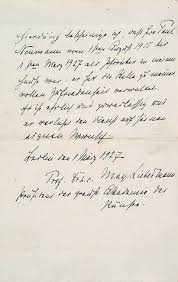 Hierdurch bescheinige ich, daß Herr Paul
Neumann vom 1ten August 1915 bis
1ten März 1927 als Pförtner in meinem
Hause war. er hat die Stelle zu meiner
vollen Zufriedenheit verwaltet.
Er ist ehrlich und zuverlässig und
er verläßt den Dienst auf seinen
eignen Wunsch.
Berlin den 1 März 1927.
Prof. Dr. h.c. Max Liebermann
Präsident der preuß. Akademie der
Künste.